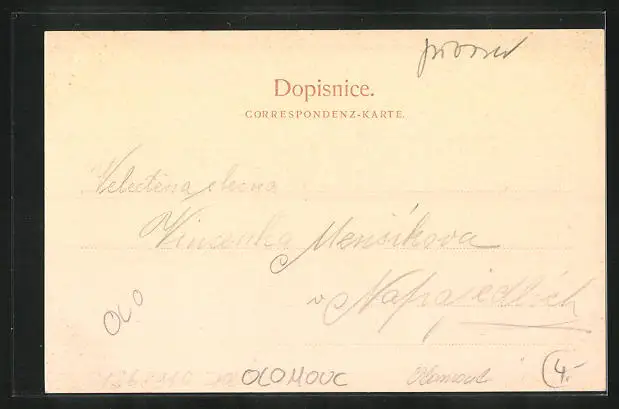 Dopisnice.
CORRESPONDENZ-KARTE.
Velectěná slečna
Vincenka Menšíkova
v Napajedlích
OLO
OLOMOUC Olomouc 4.-